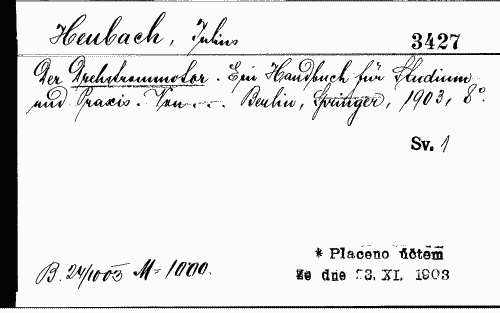 Heubach, Julius
3427
Der Drehstrommotor. Ein Handbuch für Studium
und Praxis. Von —.—. Berlin, Springer, 1903, 8°.
Sv. 1
* Placeno účtem
B. 24/1003 M= 10·00.
ze dne 23. XI. 1903